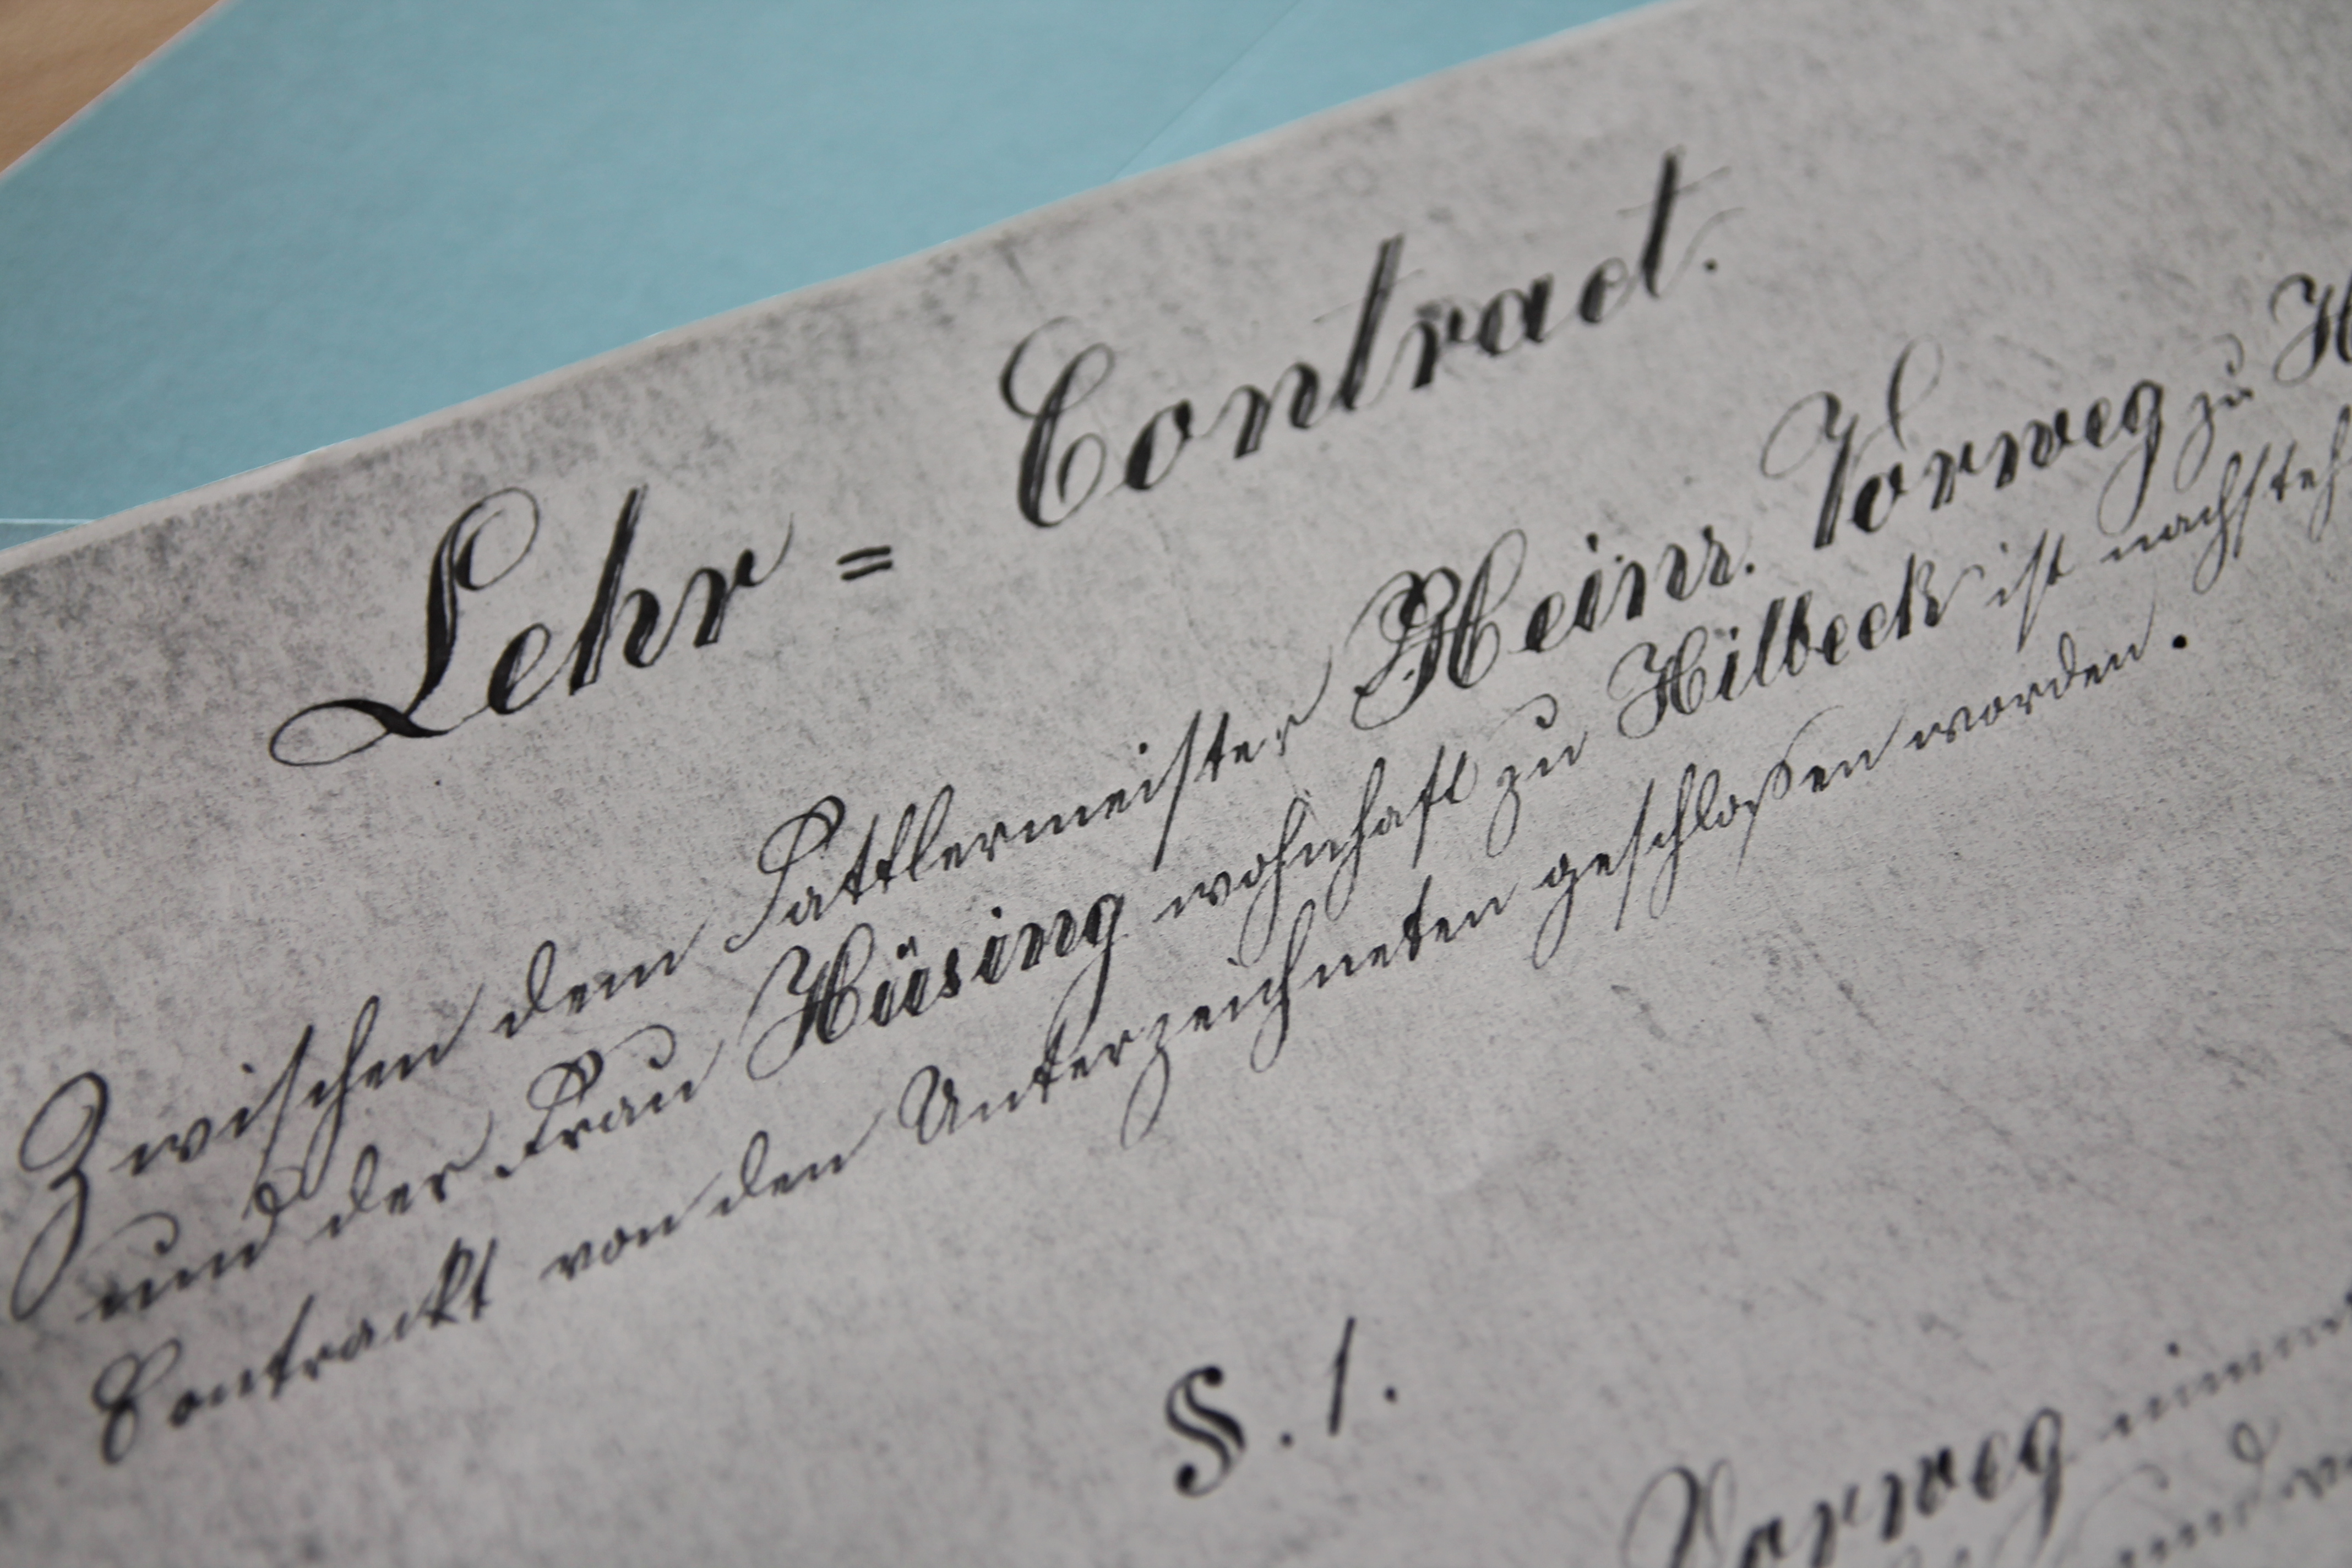 Lehr = Contract.
Zwischen dem Sattlermeister Heinr. Vorweg zu H
und der Frau Hüsing wohnhaft zu Hilbeck ist nachsteh
Contrackt von den Unterzeichneten geschloßen worden.
§. 1.
Vorweg nimm